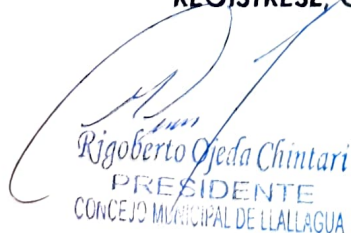 REGÍSTRESE,
Rigoberto Ojeda Chintari
PRESIDENTE
CONCEJO MUNICIPAL DE LLALLAGUA